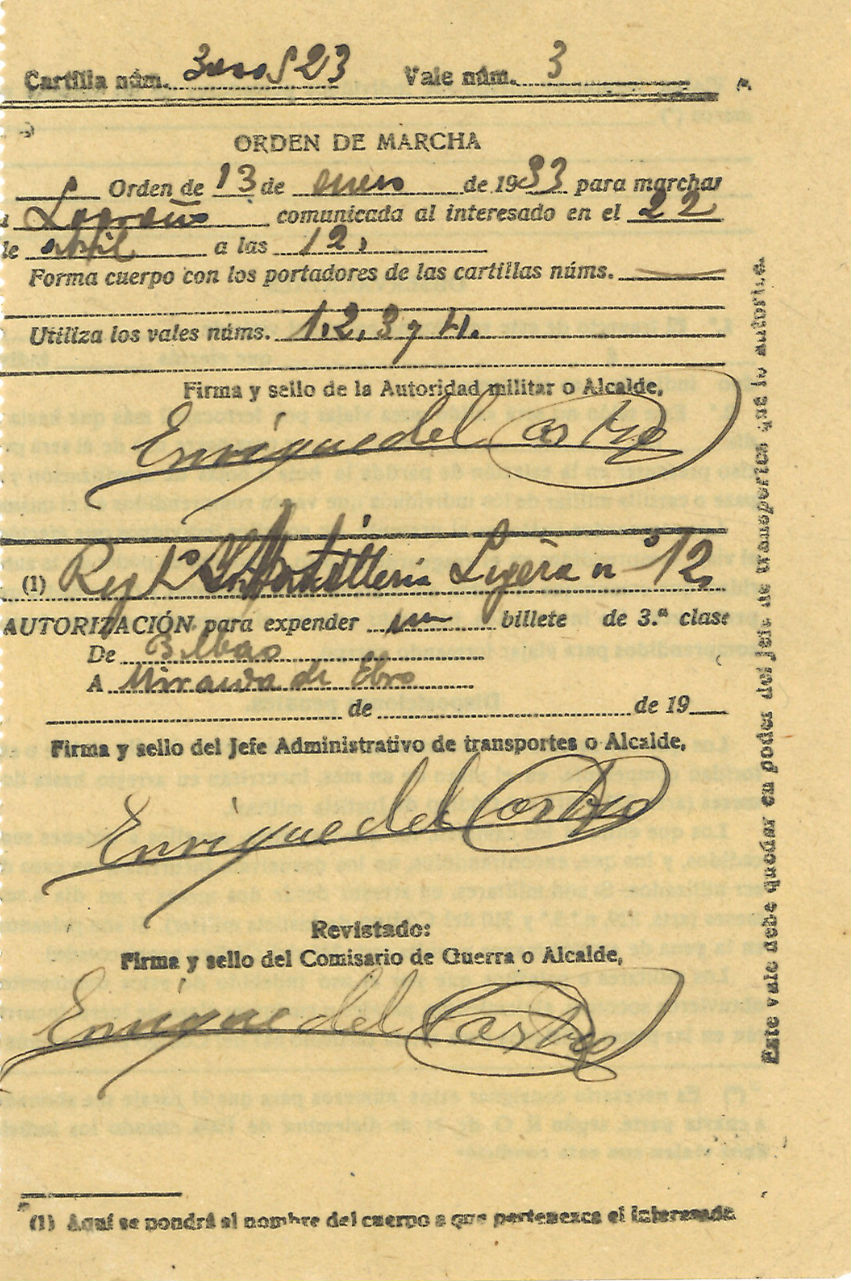 Cartilla núm. 523 Vale núm. 3
ORDEN DE MARCHA
Orden de 13 de enero de 1933 para marchar
a Logroño comunicada al interesado en el 22
de abril a las 12,
Forma cuerpo con los portadores de las cartillas núms.
Utiliza los vales núms. 1, 2, 3 y 4.
Firma y sello de la Autoridad militar o Alcalde,
Enrique del Castro
(1) Regto Artilleria Ligera nº 12
AUTORIZACIÓN para expender un billete de 3.ª clase
De Bilbao
A Miranda de Ebro
de de 19
Firma y sello del Jefe Administrativo de transportes o Alcalde,
Enrique del Castro
Revistado:
Firma y sello del Comisario de Guerra o Alcalde,
Enrique del Castro
(1) Aquí se pondrá el nombre del cuerpo a que pertenezca el interesado
Este vale debe quedar en poder del jefe de transportes que lo autoriza.